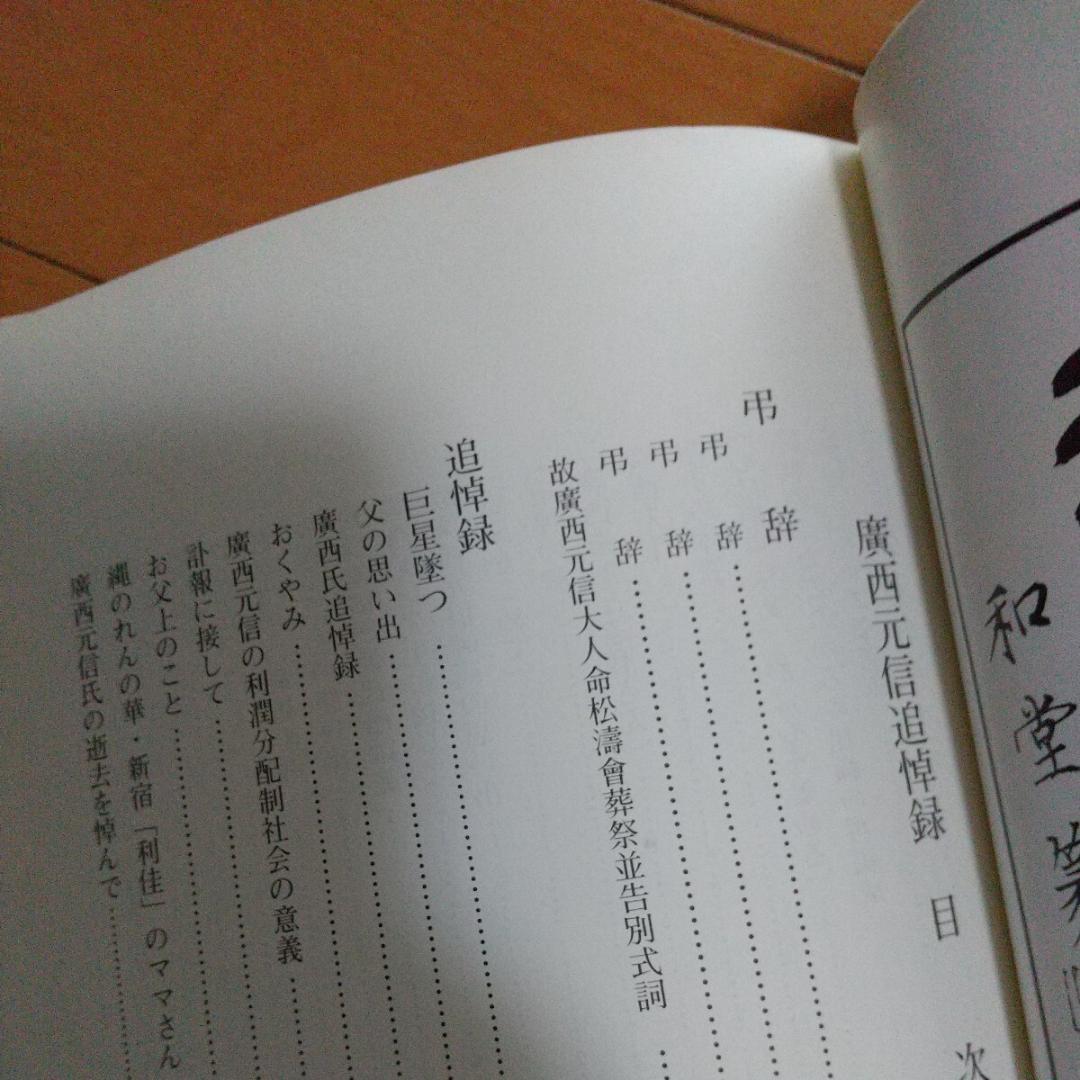 和堂
廣西元信追悼録 目次
弔辞
弔辞
弔辞
弔辞
故廣西元信大人命松濤會葬祭並告別式詞
追悼録
巨星墜つ
父の思い出
廣西氏追悼録
おくやみ
廣西元信の利潤分配制社会の意義
訃報に接して
お父上のこと
縄のれんの華・新宿「利佳」のママさん
廣西元信氏の逝去を悼んで